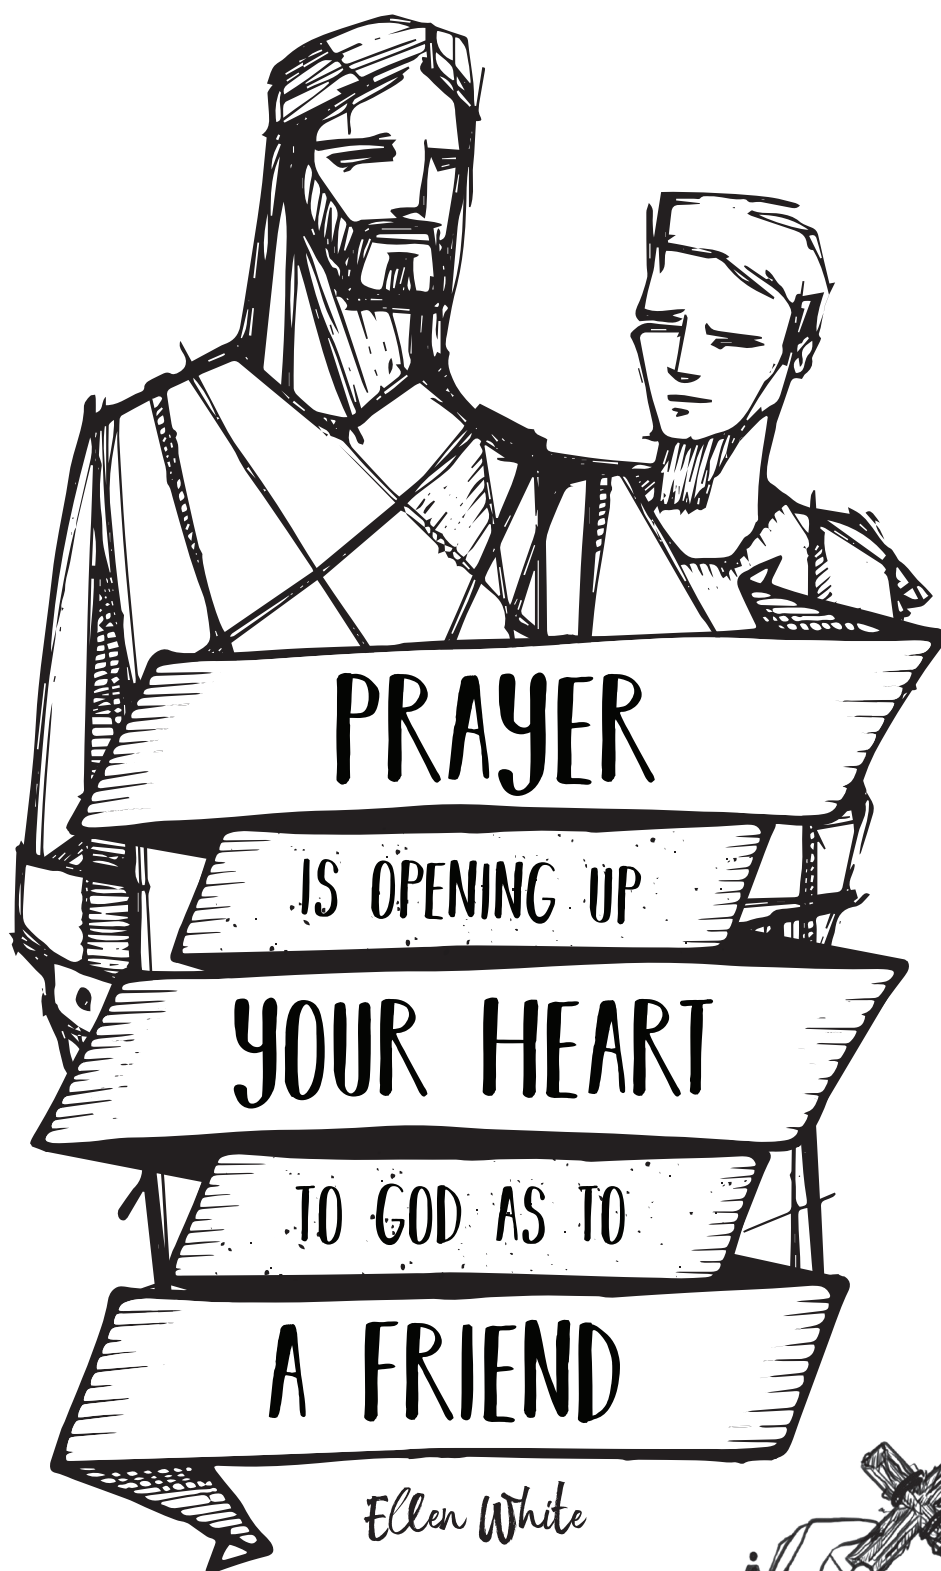 PRAYER
IS OPENING UP
YOUR HEART
TO GOD AS TO
A FRIEND
Ellen White